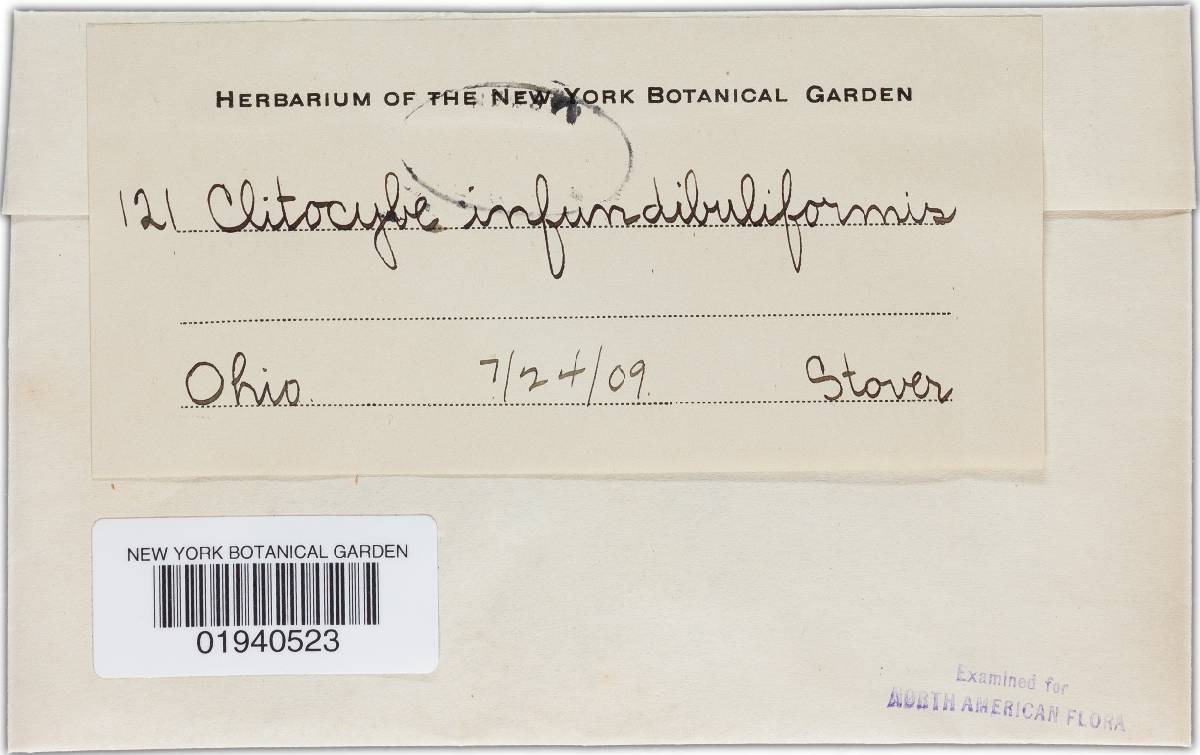 HERBARIUM OF THE NEW YORK BOTANICAL GARDEN
121 Clitocybe infundibuliformis
Ohio. 7/24/09. Stover
NEW YORK BOTANICAL GARDEN
01940523
Examined for
NORTH AMERICAN FLORA